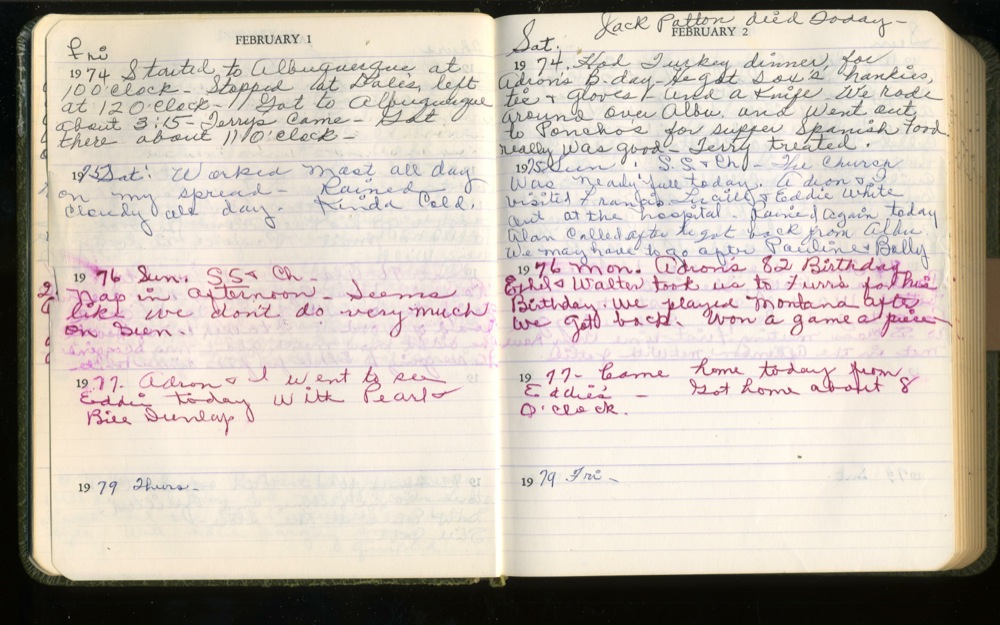 FEBRUARY 1
Fri
1974 Started to Albuquerque at
10 O'clock - Stopped at Dale's, left
at 12 O'clock - Got to Albuquerque
about 3:15 - Terrys came - Got
there about 11 O'clock -
1975 Sat: Worked most all day
on my spread - Rained
Cloudy all day. Kinda Cold.
1976 Sun. S.S & Ch -
Nap in afternoon - Seems
like we dont do very much
on Sun.
1977 - Adron & I went to see
Eddie today with Pearl &
Bill Dunlap
1979 Thurs -
Jack Patton died Today -
FEBRUARY 2
Sat.
1974. Had Turkey dinner, for
Adron's B-day - He got Sox's hankies,
tie & gloves - and a Knife We rode
around over Albu. and went out
to Ponchos for supper Spanish Food.
really was good - Terry treated.
1975 Sun. S.S & Ch - The Church
was nearly full today. Adron & I
visited Francis, Lucille & Eddie White
out at the hospital. Rained Again today
Alan Called after he got back from Albu.
We may have to go after Pauline & Billy
1976 Mon. Adron's 82 Birthday
Ethel & Walter took us to Furrs for his
Birthday. We played Montana after
we got back. Won a game a piece
1977 - Came home today from
Eddie's - Got home about 8
O'clock.
1979 Fri -